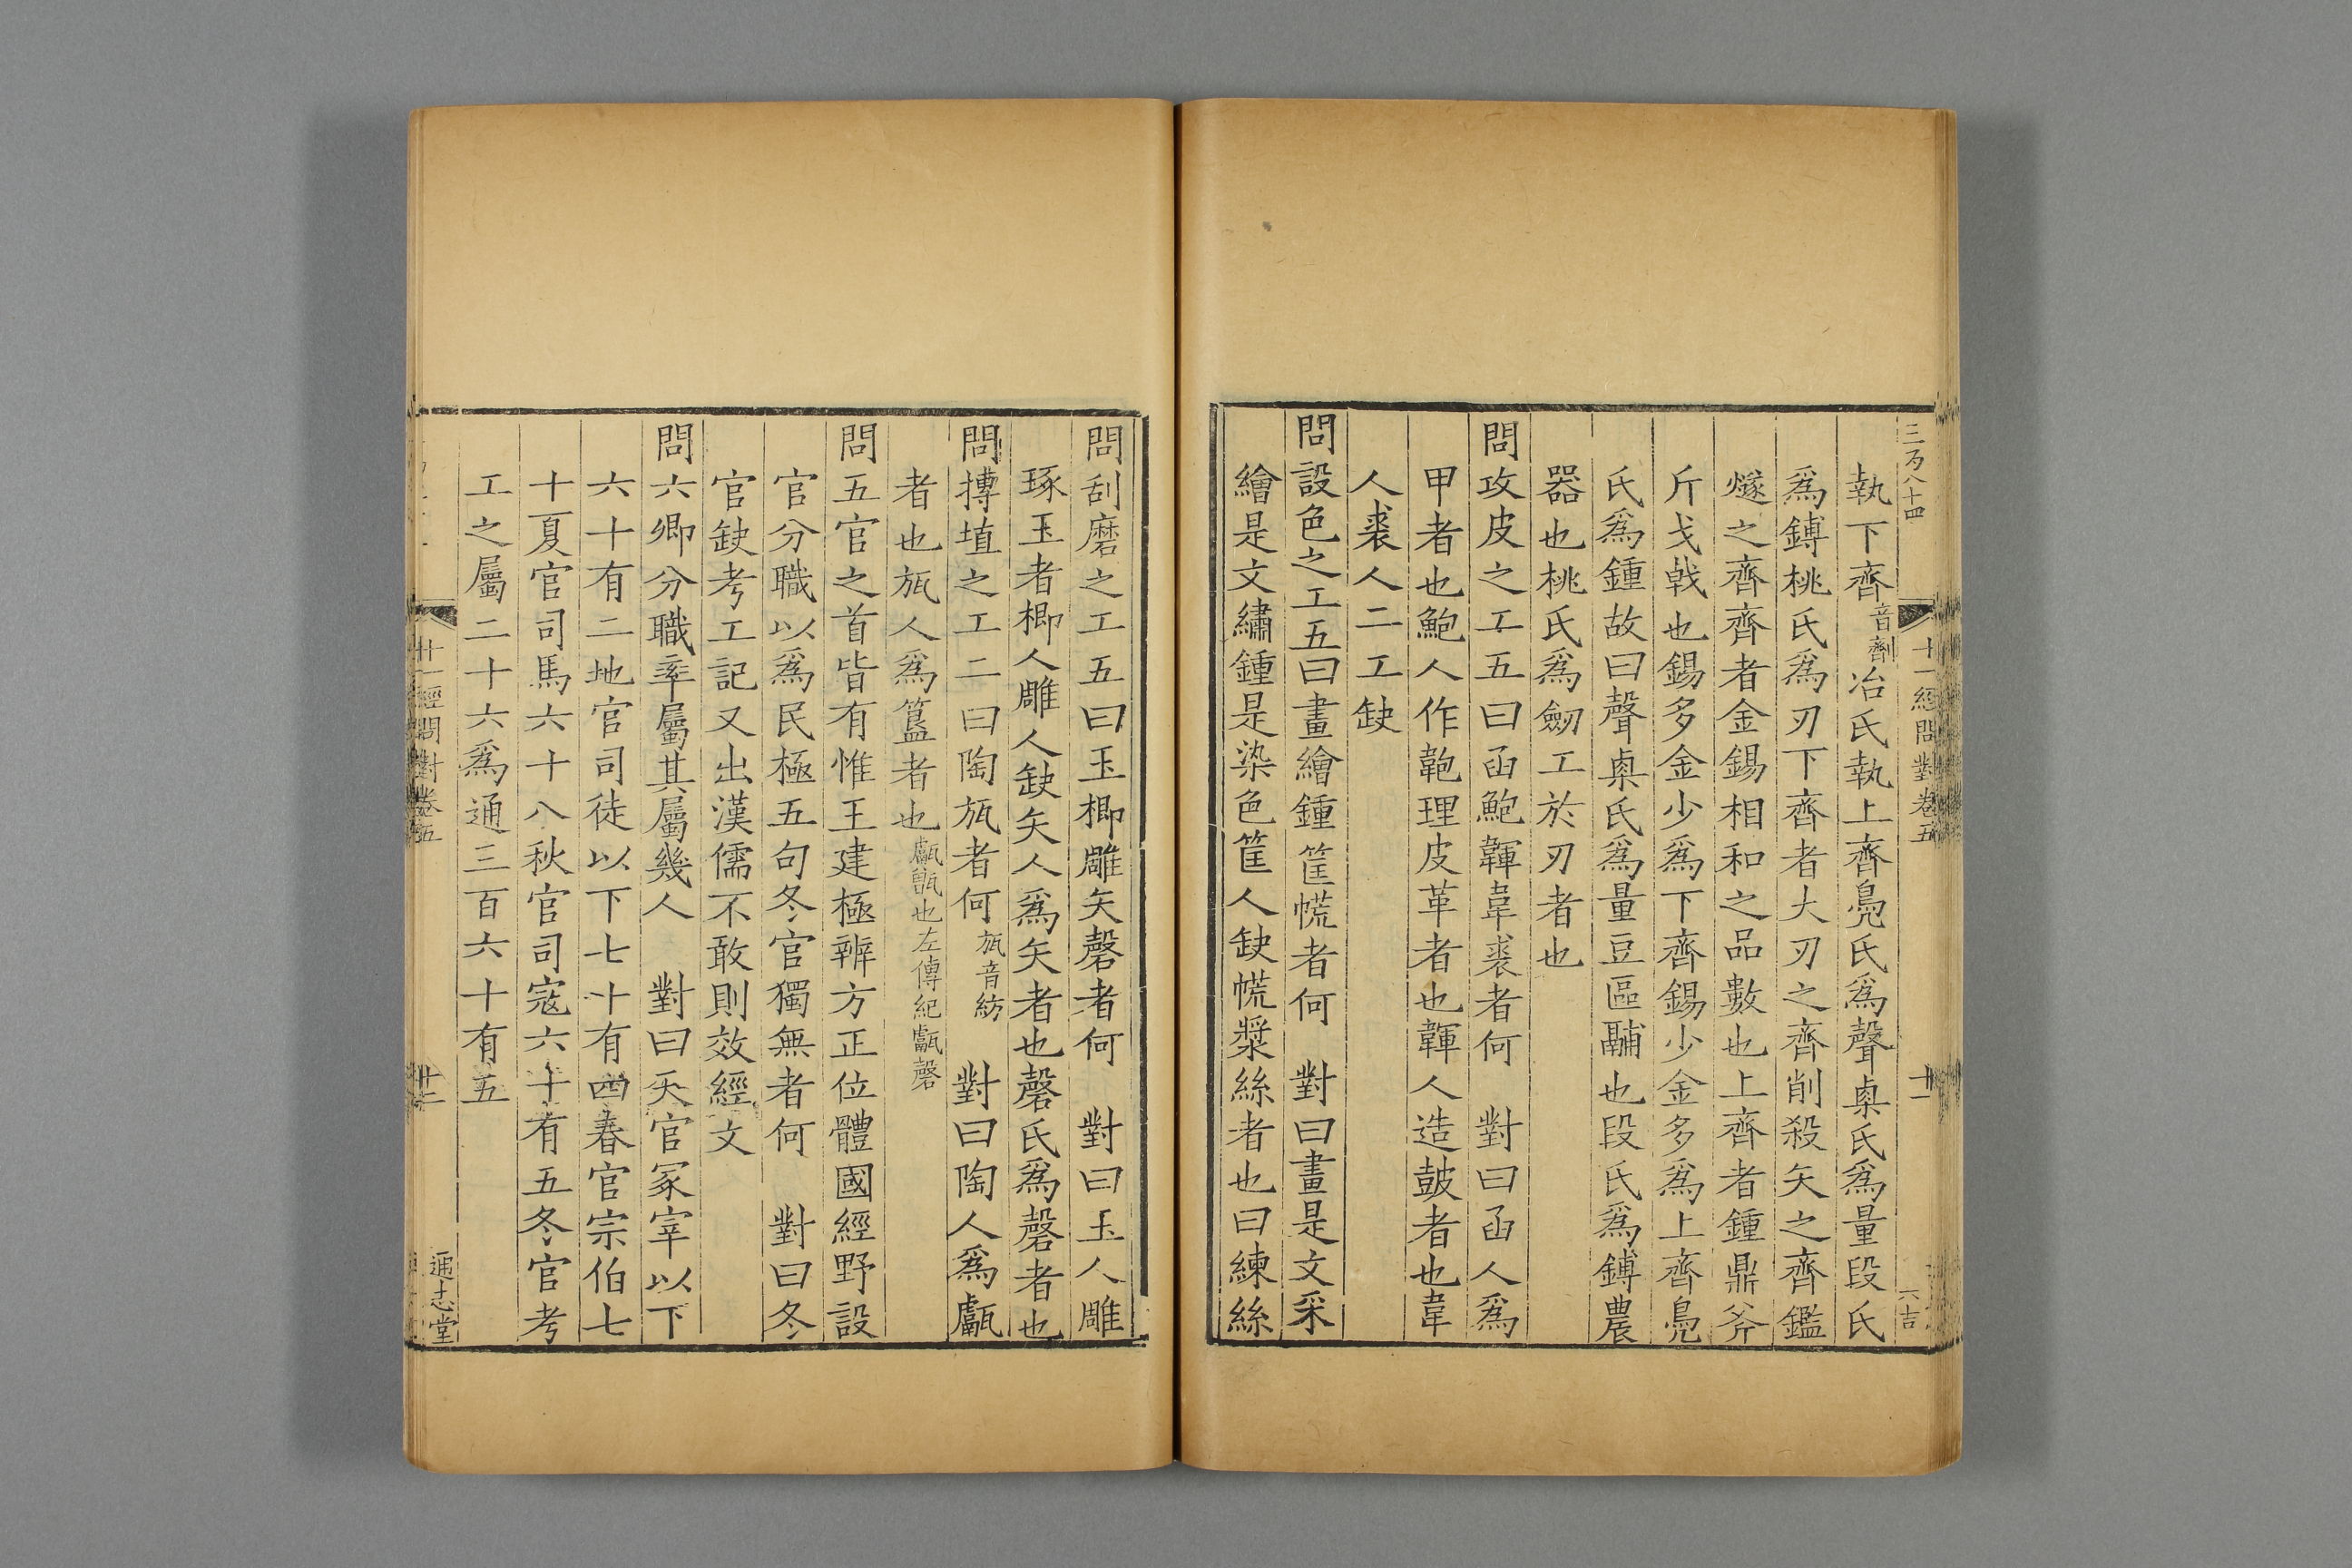 三百八十四
十一經問對卷五
十一
六吉
執下齊音劑冶氏執上齊鳧氏爲聲㮚氏爲量段氏
爲鎛桃氏爲刃下齊者大刃之齊削殺矢之齊鑑
燧之齊齊者金錫相和之品數也上齊者鍾鼎斧
斤戈戟也錫多金少爲下齊錫少金多爲上齊鳧
氏爲鍾故曰聲㮚氏爲量豆區鬴也段氏爲鎛農
器也桃氏爲劒工於刃者也
問攻皮之工五曰函鮑韗韋裘者何　對曰函人爲
甲者也鮑人作鞄理皮革者也韗人造皷者也韋
人裘人二工缺
問設色之工五曰畫繪鍾筐㡆者何　對曰畫是文采
繪是文繡鍾是染色筐人缺㡆漿絲者也曰練絲
問刮磨之工五曰玉楖雕矢磬者何　對曰玉人雕
琢玉者楖人雕人缺矢人爲矢者也磬氏爲磬者也
問摶埴之工二曰陶瓬者何瓬音紡　對曰陶人爲甗
者也瓬人爲簋者也甗甑也左傳紀甗磬
問五官之首皆有惟王建極辨方正位體國經野設
官分職以爲民極五句冬官獨無者何　對曰冬
官缺考工記又出漢儒不敢則效經文
問六卿分職率屬其屬幾人　對曰天官冢宰以下
六十有二地官司徒以下七十有四春官宗伯七
十夏官司馬六十八秋官司寇六十有五冬官考
工之屬二十六爲通三百六十有五
十一經問對卷五
十二
通志堂